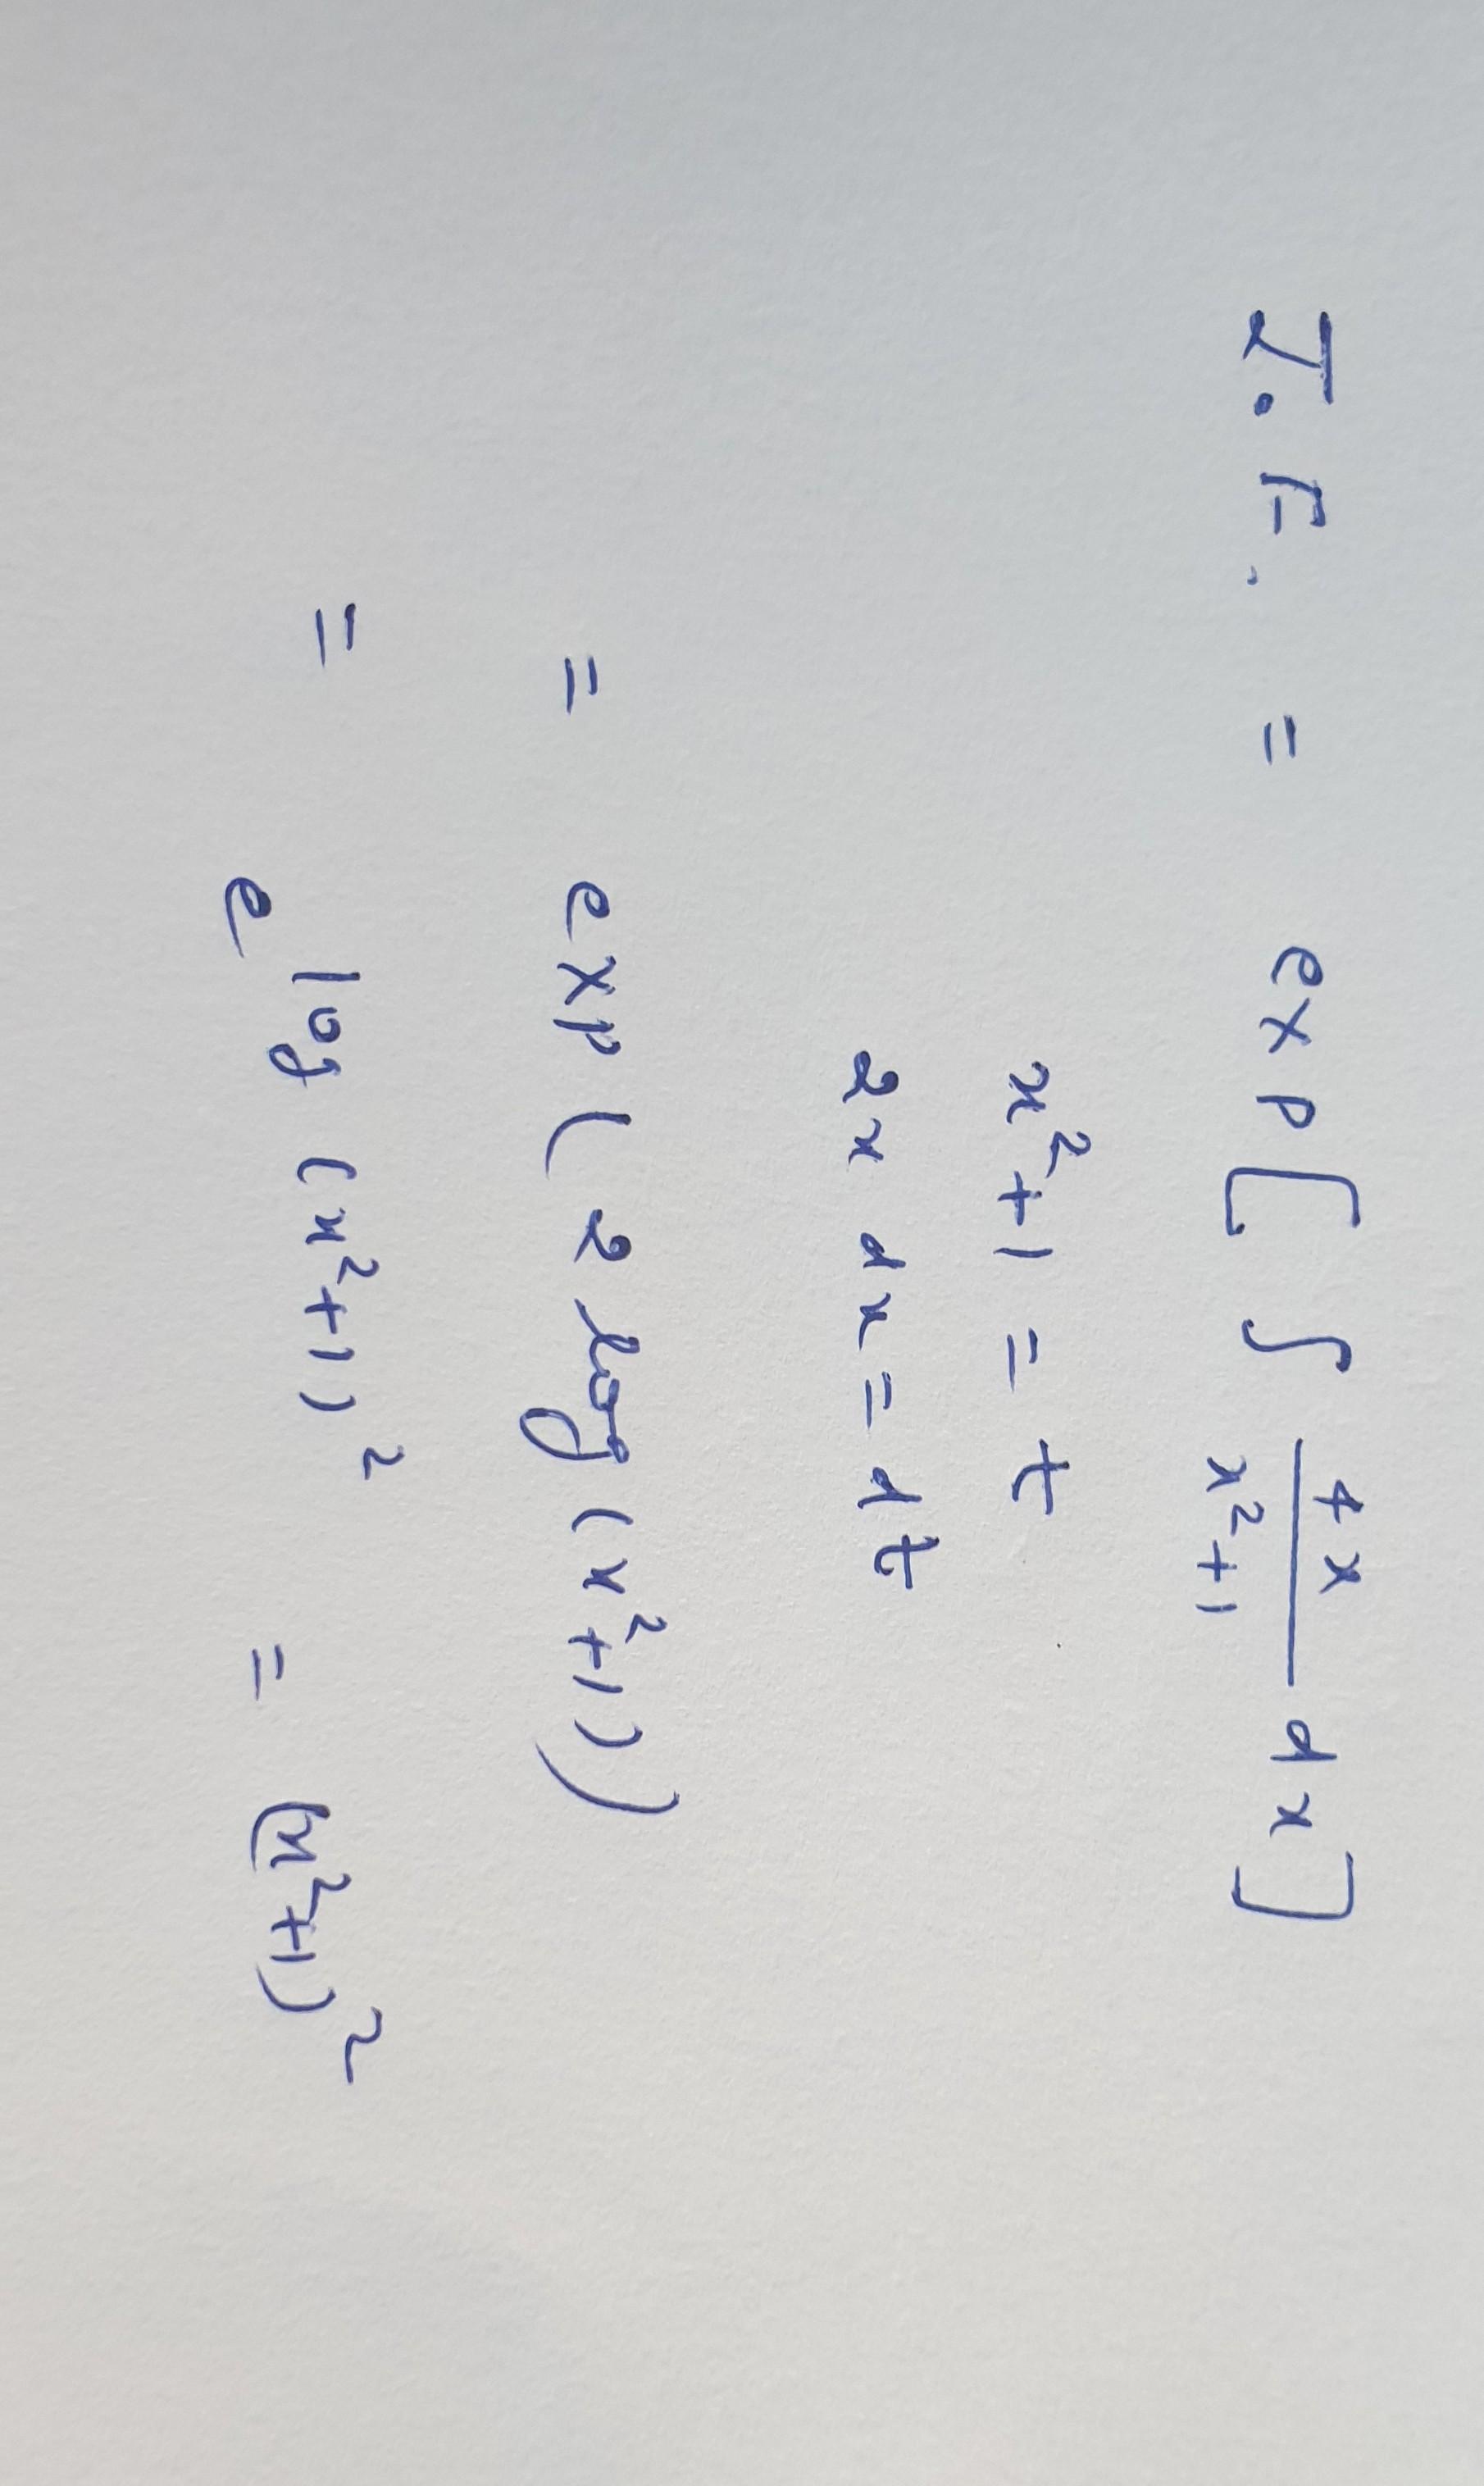 I.F. = exp[ ∫ 4x/(x²+1) dx ]
x²+1 = t
2x dx = dt
= exp( 2 log (x²+1))
= e^{log (x²+1)²} = (x²+1)²